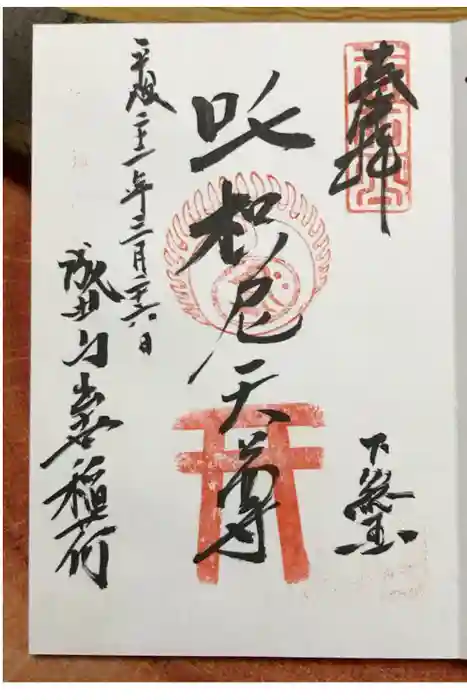 奉拝
下総国
吒枳尼天尊
平成二十一年三月二十六日
成田山出世稲荷